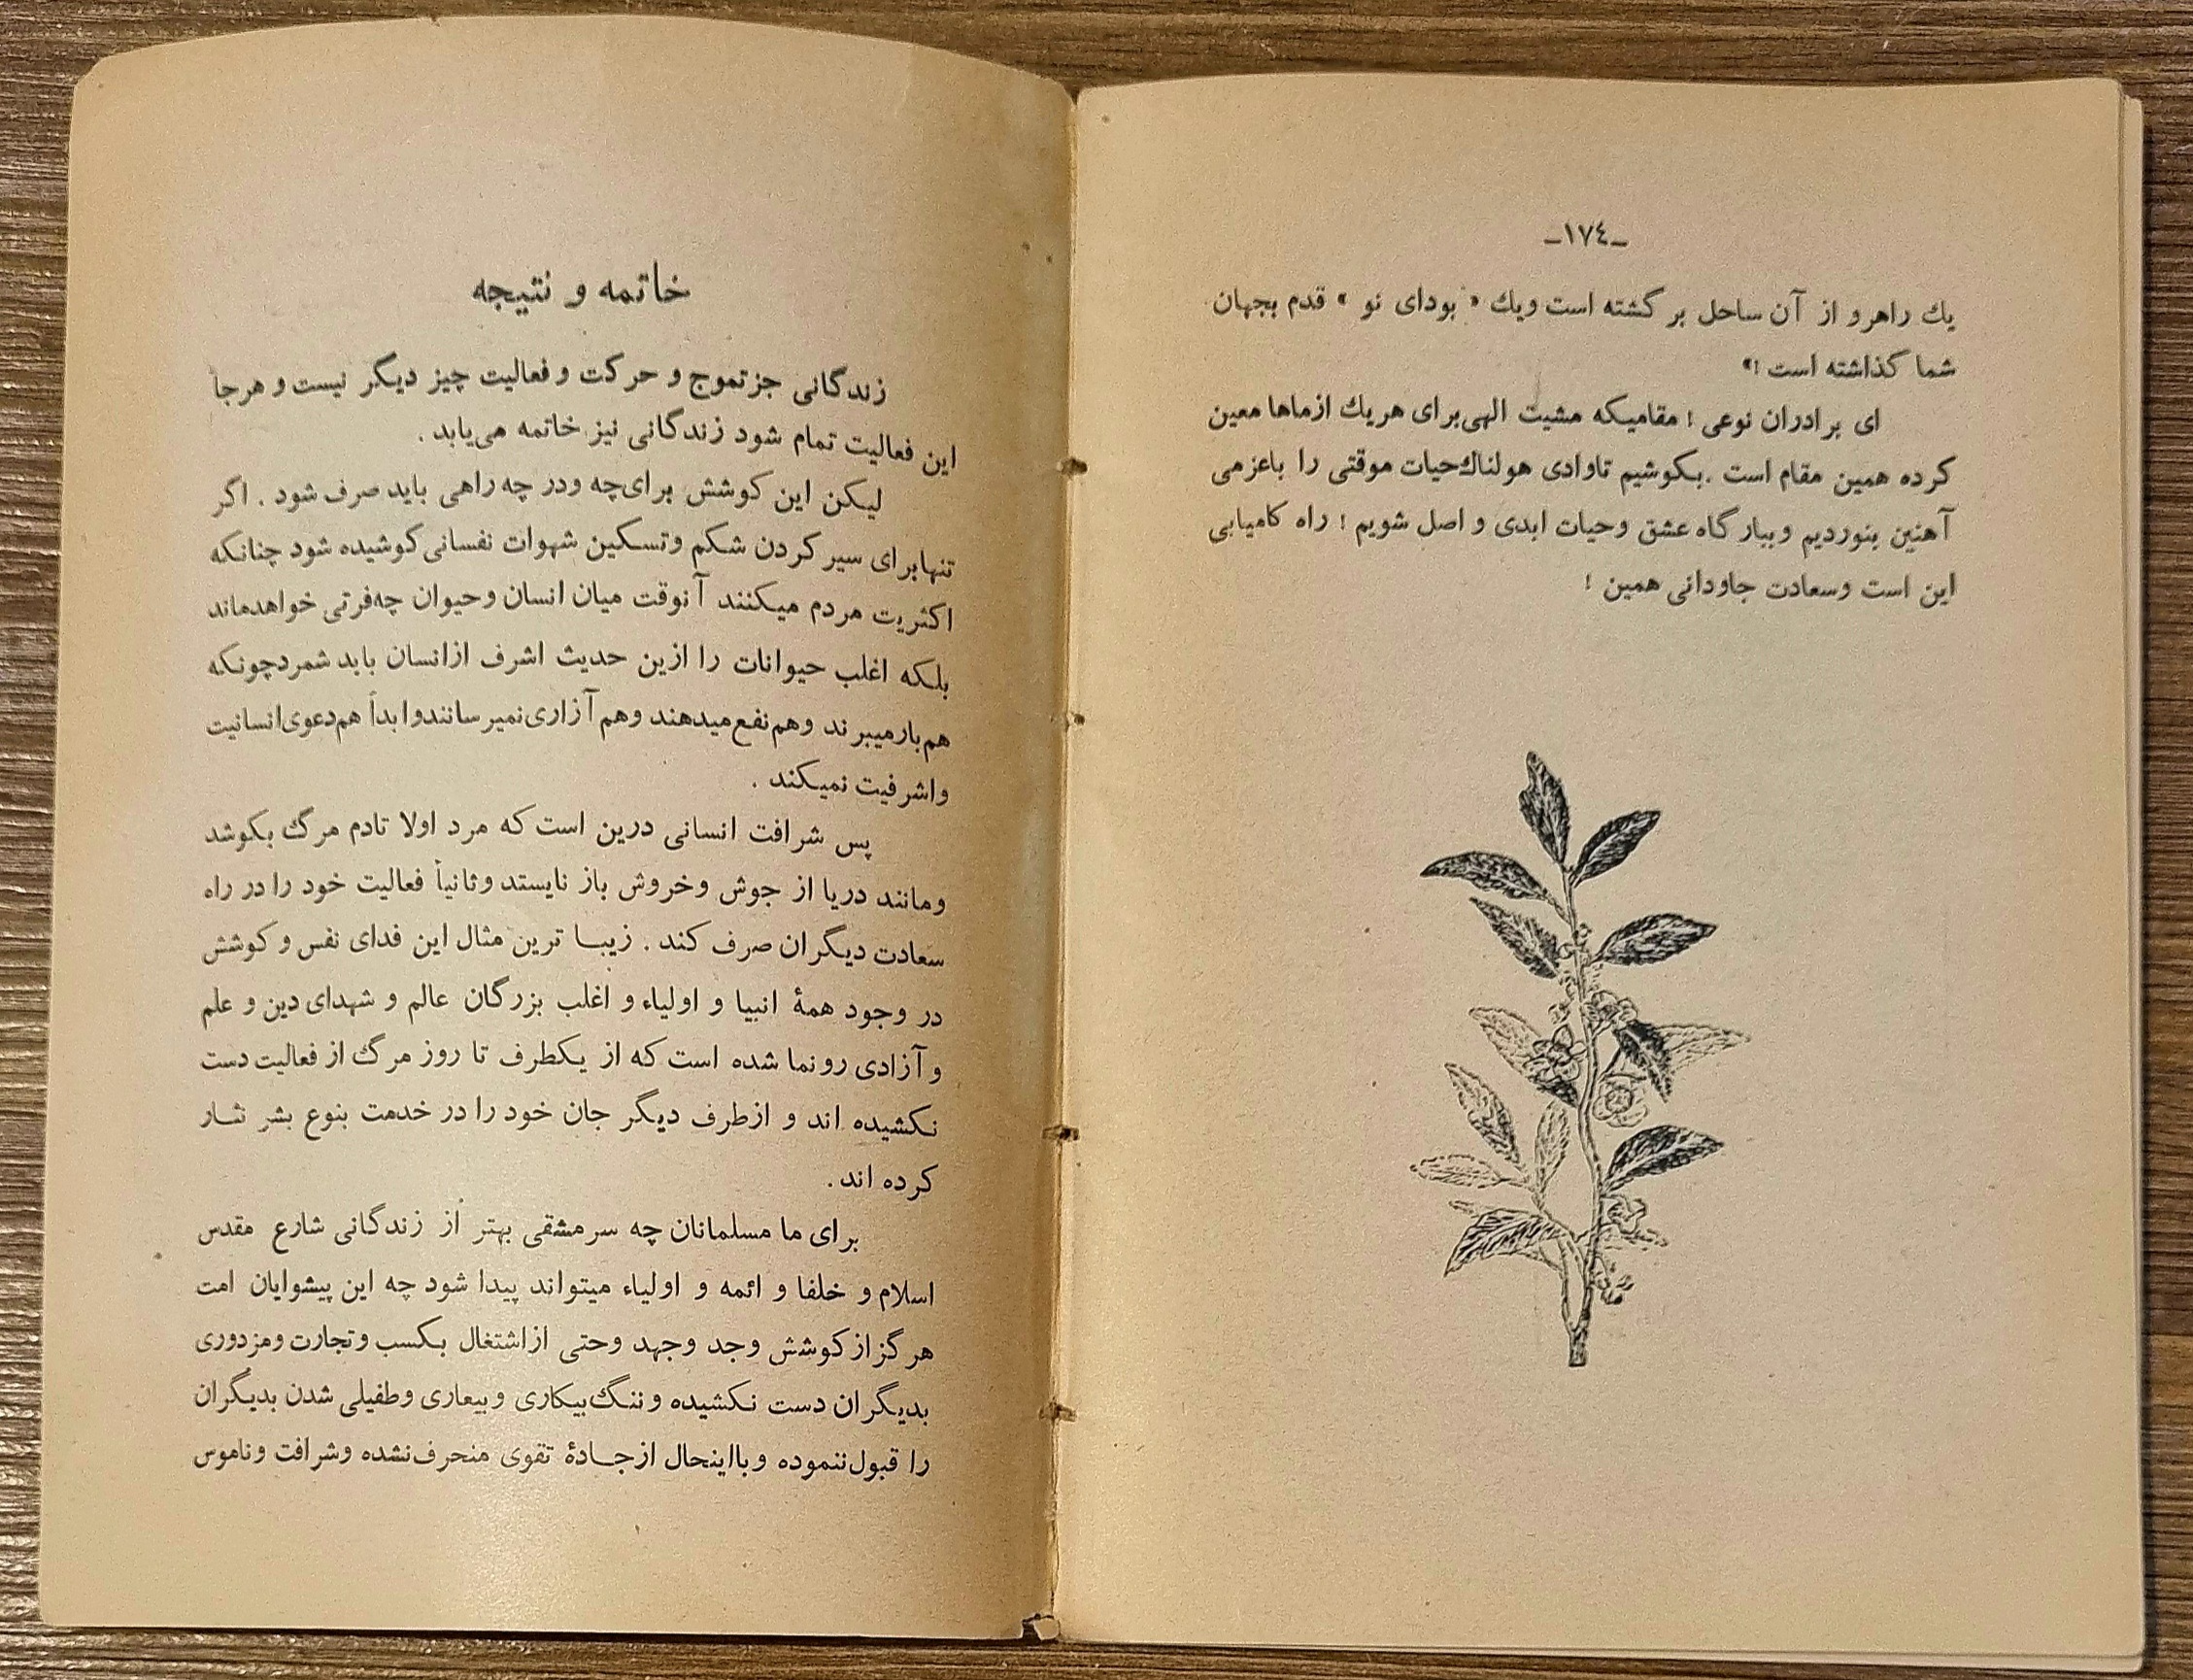 ـ١٧٤ـ
يك راهرو از آن ساحل برگشته است ويك « بودای نو » قدم بجهان
شما گذاشته است !»
ای برادران نوعی ! مقاميكه مشيت الهی برای هريك ازماها معين
كرده همين مقام است . بكوشيم تاوادی هولناك حيات موقتی را باعزمی
آهنين بنورديم وببارگاه عشق وحيات ابدی و اصل شويم ! راه كاميابی
اين است وسعادت جاودانی همين !
خاتمه و نتيجه
زندگانی جز تموج و حركت و فعاليت چيز ديگر نيست و هرجا
اين فعاليت تمام شود زندگانی نيز خاتمه می‌يابد .
ليكن اين كوشش برای چه ودر چه راهی بايد صرف شود . اگر
تنها برای سير كردن شكم وتسكين شهوات نفسانی كوشيده شود چنانكه
اكثريت مردم ميكنند آنوقت ميان انسان وحيوان چه فرتی خواهدماند
بلكه اغلب حيوانات را ازين حديث اشرف ازانسان بابد شمرد چونكه
هم بارميبرند وهم نفع ميدهند وهم آزاری نميرسانند وابداً هم دعوی انسانيت
واشرفيت نميكند .
پس شرافت انسانی درين است كه مرد اولا تادم مرگ بكوشد
ومانند دريا از جوش وخروش باز نايستد وثانياً فعاليت خود را در راه
سعادت ديگران صرف كند . زيبا ترين مثال اين فدای نفس و كوشش
در وجود همهٔ انبيا و اولياء و اغلب بزرگان عالم و شهدای دين و علم
و آزادی رونما شده است كه از يكطرف تا روز مرگ از فعاليت دست
نكشيده اند و ازطرف ديگر جان خود را در خدمت بنوع بشر نثار
كرده اند .
برای ما مسلمانان چه سرمشقی بهتر از زندگانی شارع مقدس
اسلام و خلفا و ائمه و اولياء ميتواند پيدا شود چه اين پيشوايان امت
هرگز ازكوشش وجد وجهد وحتی ازاشتغال بكسب وتجارت ومزدوری
بديگران دست نكشيده وننگ بيكاری وبيعاری وطفيلی شدن بديگران
را قبول ننموده وبااينحال ازجادهٔ تقوی منحرف نشده وشرافت وناموس